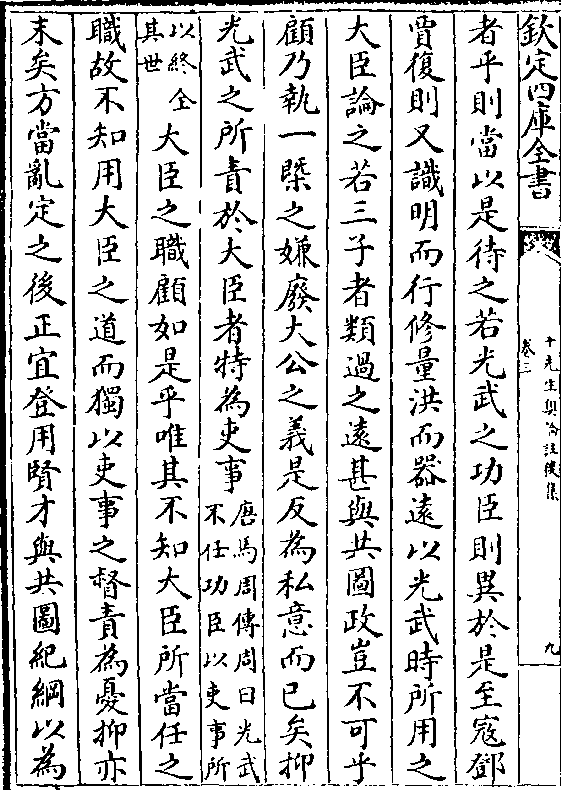 欽定四庫全書
十先生奧論註後集
卷三
九
者乎則當以是待之若光武之功臣則異於是至寇鄧
賈復則又識明而行修量洪而器遠以光武時所用之
大臣論之若三子者類過之遠甚與共圖政豈不可乎
顧乃執一槩之嫌廢大公之義是反為私意而已矣抑
光武之所責於大臣者特為吏事唐馬周傳周曰光武不任功臣以吏事所
以終全其世大臣之職顧如是乎唯其不知大臣所當任之
職故不知用大臣之道而獨以吏事之督責為憂抑亦
末矣方當亂定之後正宜登用賢才與共圖紀綱以為